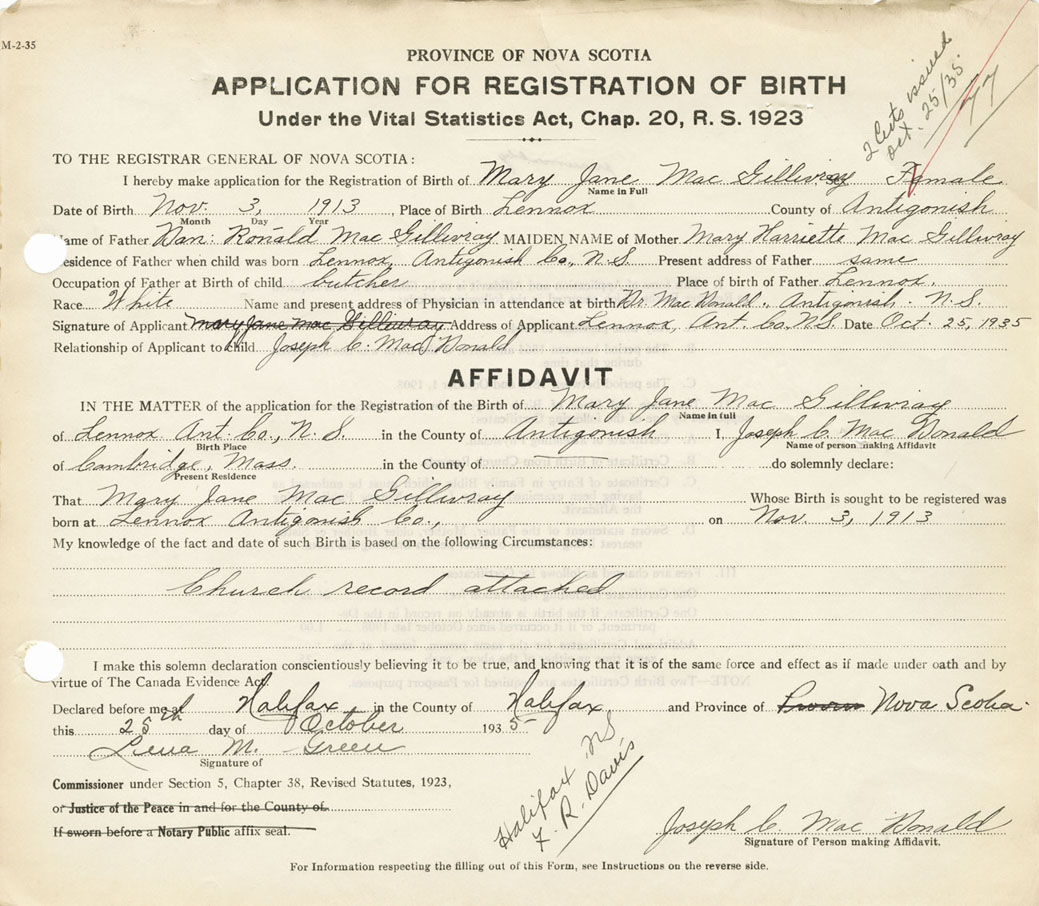 M-2-35
PROVINCE OF NOVA SCOTIA
APPLICATION FOR REGISTRATION OF BIRTH
Under the Vital Statistics Act, Chap. 20, R. S. 1923
2 Certs issued
Oct. 25/35
77
TO THE REGISTRAR GENERAL OF NOVA SCOTIA:
I hereby make application for the Registration of Birth of Mary Jane Mac Gillivray Female
Name in Full
Date of Birth Nov. 3, 1913, Place of Birth Lennox County of Antigonish
Month Day Year
Name of Father Dan: Ronald Mac Gillivray MAIDEN NAME of Mother Mary Harriette Mac Gillivray
Residence of Father when child was born Lennox, Antigonish Co., N.S. Present address of Father same
Occupation of Father at Birth of child butcher Place of birth of Father Lennox.
Race White Name and present address of Physician in attendance at birth Dr. Mac Donald, Antigonish. N.S.
Signature of Applicant Mary Jane Mac Gillivray Address of Applicant Lennox, Ant. Co. N.S. Date Oct. 25, 1935
Relationship of Applicant to child Joseph C. Mac Donald
AFFIDAVIT
IN THE MATTER of the application for the Registration of the Birth of Mary Jane Mac Gillivray
Name in full
of Lennox Ant Co., N.S. in the County of Antigonish I, Joseph C. Mac Donald
Birth Place Name of person making Affidavit
of Cambridge, Mass. in the County of do solemnly declare:
Present Residence
That Mary Jane Mac Gillivray Whose Birth is sought to be registered was
born at Lennox Antigonish Co., on Nov. 3, 1913
My knowledge of the fact and date of such Birth is based on the following Circumstances:
Church record attached
I make this solemn declaration conscientiously believing it to be true, and knowing that it is of the same force and effect as if made under oath and by
virtue of The Canada Evidence Act.
Declared before me at Halifax in the County of Halifax, and Province of Nova Scotia.
this 25th day of October 1935
Lena M. Green
Signature of
Commissioner under Section 5, Chapter 38, Revised Statutes, 1923,
or Justice of the Peace in and for the County of
If sworn before a Notary Public affix seal.
Halifax NS
F. R. Davis
Joseph C. Mac Donald
Signature of Person making Affidavit.
For Information respecting the filling out of this Form, see Instructions on the reverse side.